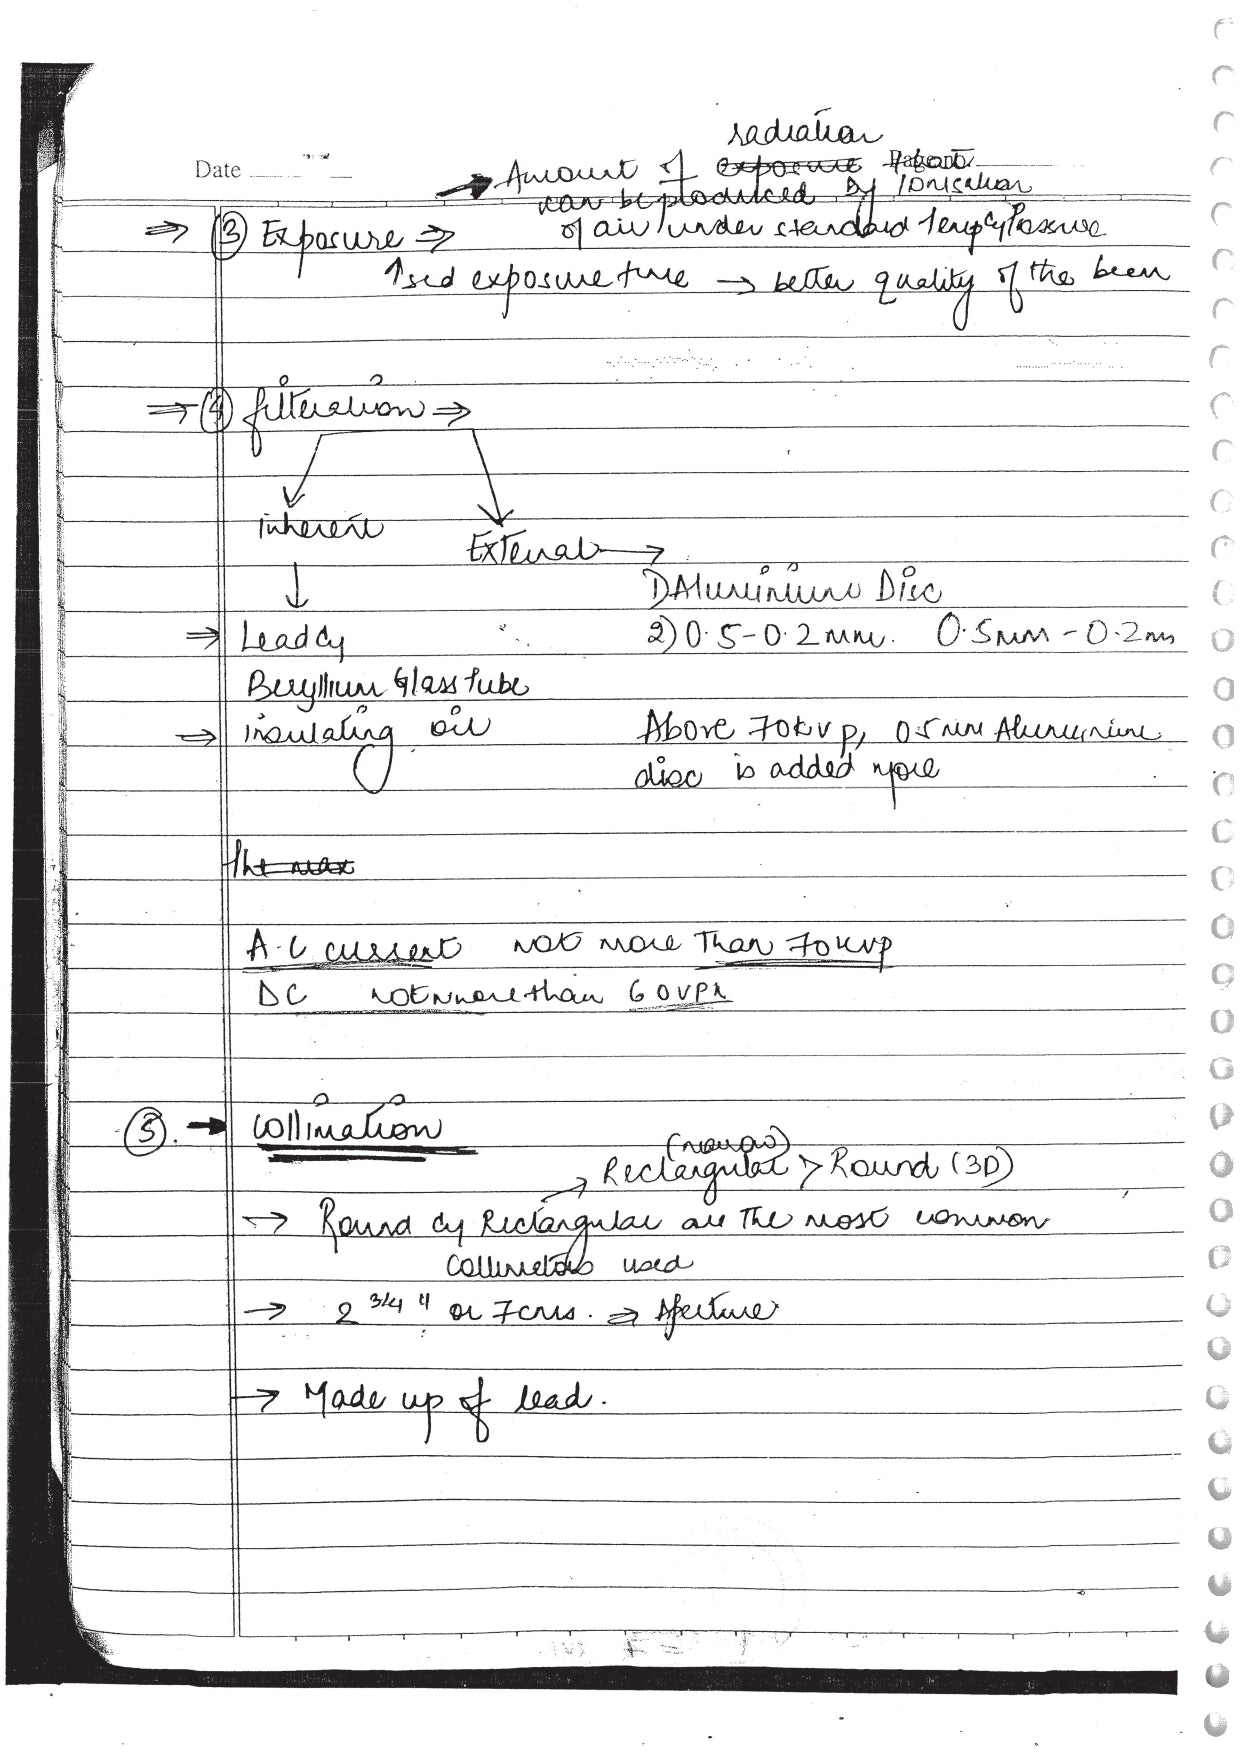 radiation
Date
Amount of exposure that
can be produced by Ionisation
③ Exposure ⇒ of air under standard temp & Pressure
↑sed exposure time → better quality of the beem
④ filteration ⇒
inherent
External →
1) Aluminium Disc
⇒ Lead &
2) 0.5-0.2mm. 0.5mm - 0.2mm
Beryllium Glass tube
⇒ insulating oil
Above 70kvp, 0.5mm Alumunium
disc is added more
The max
A.C current not more than 70kvp
DC not more than 60
⑤. → Collimation
(narrow)
Rectangular > Round (3D)
→ Round & Rectangular are the most common
Collimetors used
→ 2 3/4 " or 7cms. ⇒ Aperture
→ Made up of lead.